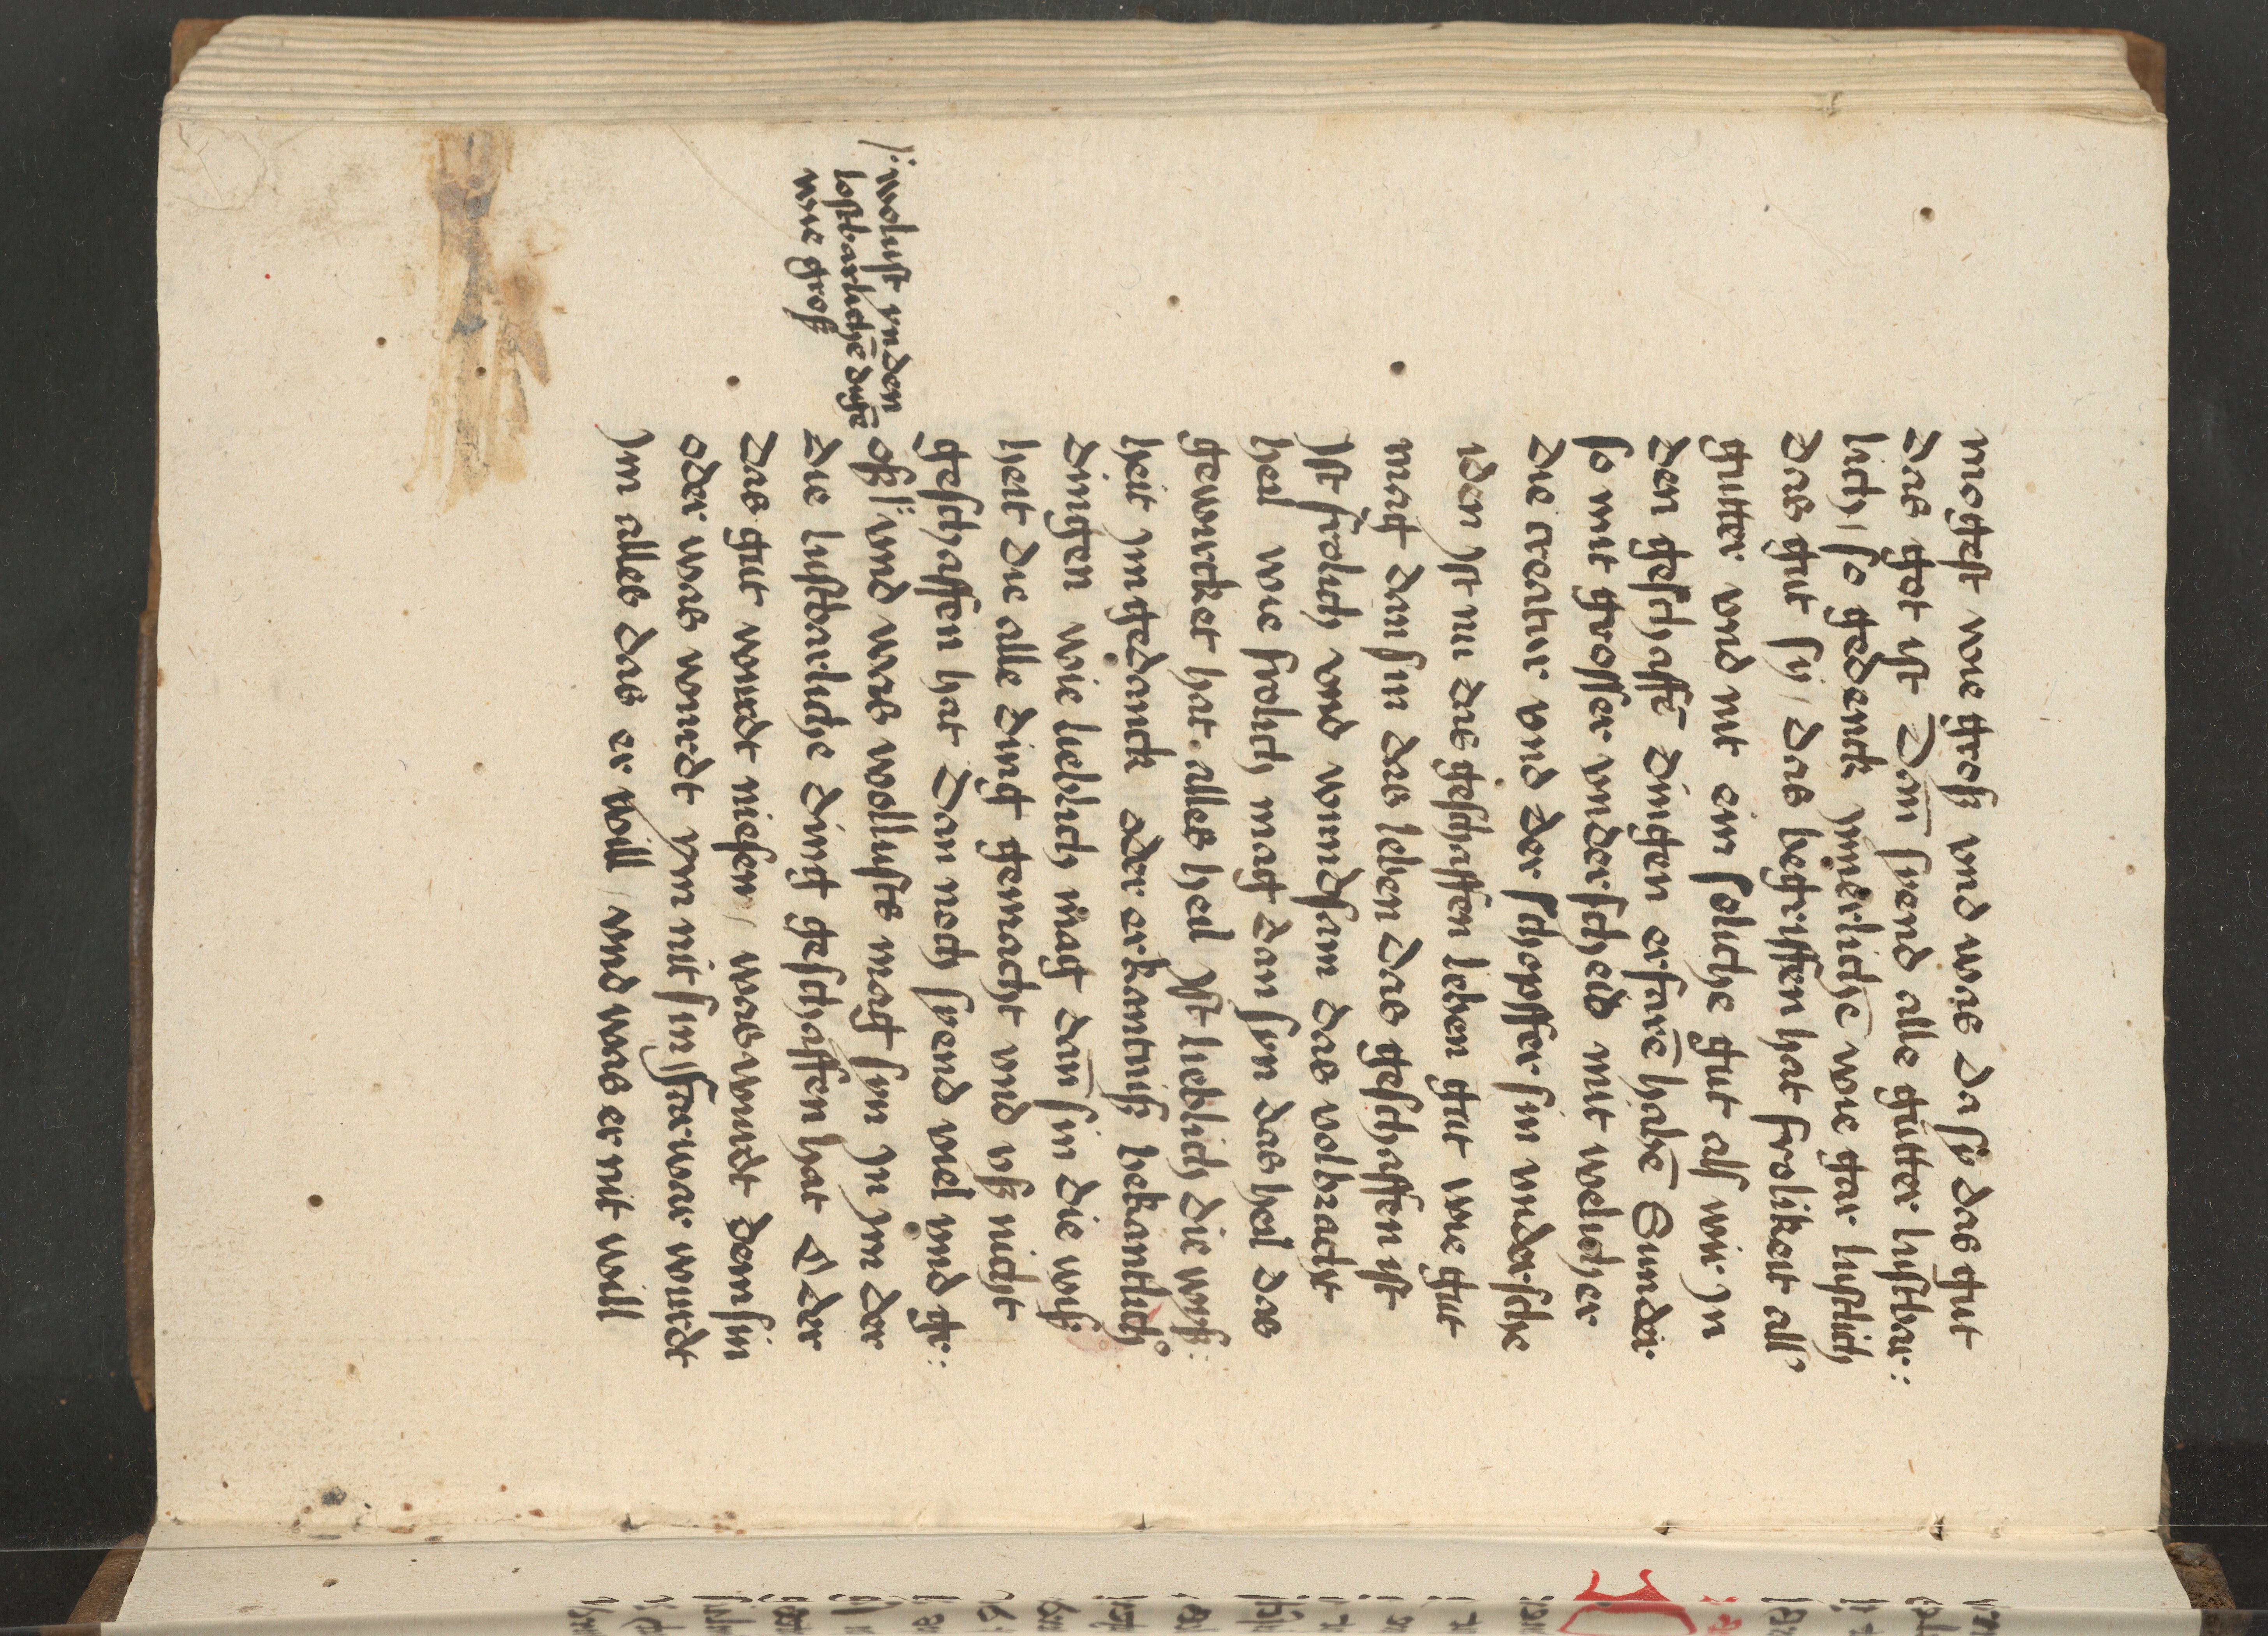 mogest wie groß vnd was da sy das gut
das got ist Dan̄ synd alle gütter lustbar:
lich / so gedenck ym̄erlichē wie gar lustlich
das gut sy / das begriffen hat frolikeit all'
gutter vnd nit ein soliche gut als wir yn
den geschaffē dingen erfarē habē Sunder
so mit grosser vnderscheid mit welicher
die creatur vnd der schopffer sin vndersche
iden Ist nu das geschaffen leben gut wie gut
mag dan sin das leben das geschaffen ist
Ist frolich vnd wundsam das volbracht
heil wie frolich mag dan syn das heil das
gewurcket hat. alles heil Ist lieblich die wyß:
heit yn gedanck oder erkantniß bekantlich°
dingen wie lieblich mag dan̄ sin die wyß
heit die alle ding gemacht vnd vß nicht
geschaffen hat Dan noch synd viel vnd gr:
oß/: vnd was wollustes mag syn yn ym der
die lustbarliche ding geschaffen hat O der
das gut wurdt niesen / was wurdt dem sin
oder was wurdt ym nit sin / furwar wurdt
ym alles das er will / vnd was er nit will
/: wolust yn den
lustbarlichē dingē
wie groß